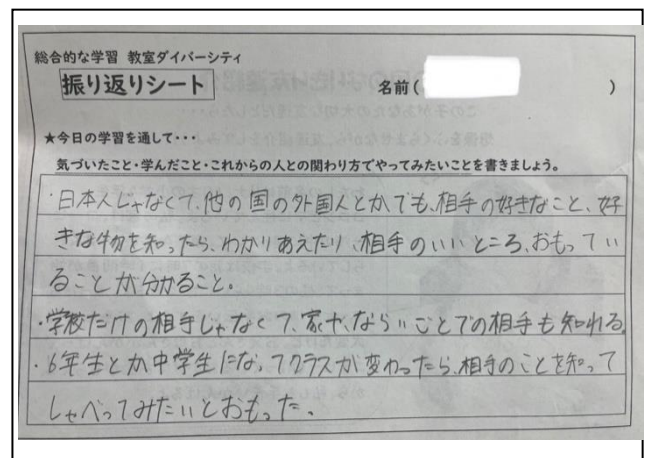 総合的な学習 教室ダイバーシティ
振り返りシート
名前( )
★今日の学習を通して・・・
気づいたこと・学んだこと・これからの人との関わり方でやってみたいことを書きましょう。
・日本人じゃなくて、他の国の外国人とかでも、相手の好きなこと、好
きな物を知ったら、わかりあえたり、相手のいいところ、おもってい
ることが分かること。
・学校だけの相手じゃなくて、家や、ならいごとでの相手も知れる。
・6年生とか中学生になってクラスが変わったら、相手のことを知って
しゃべってみたいとおもった。